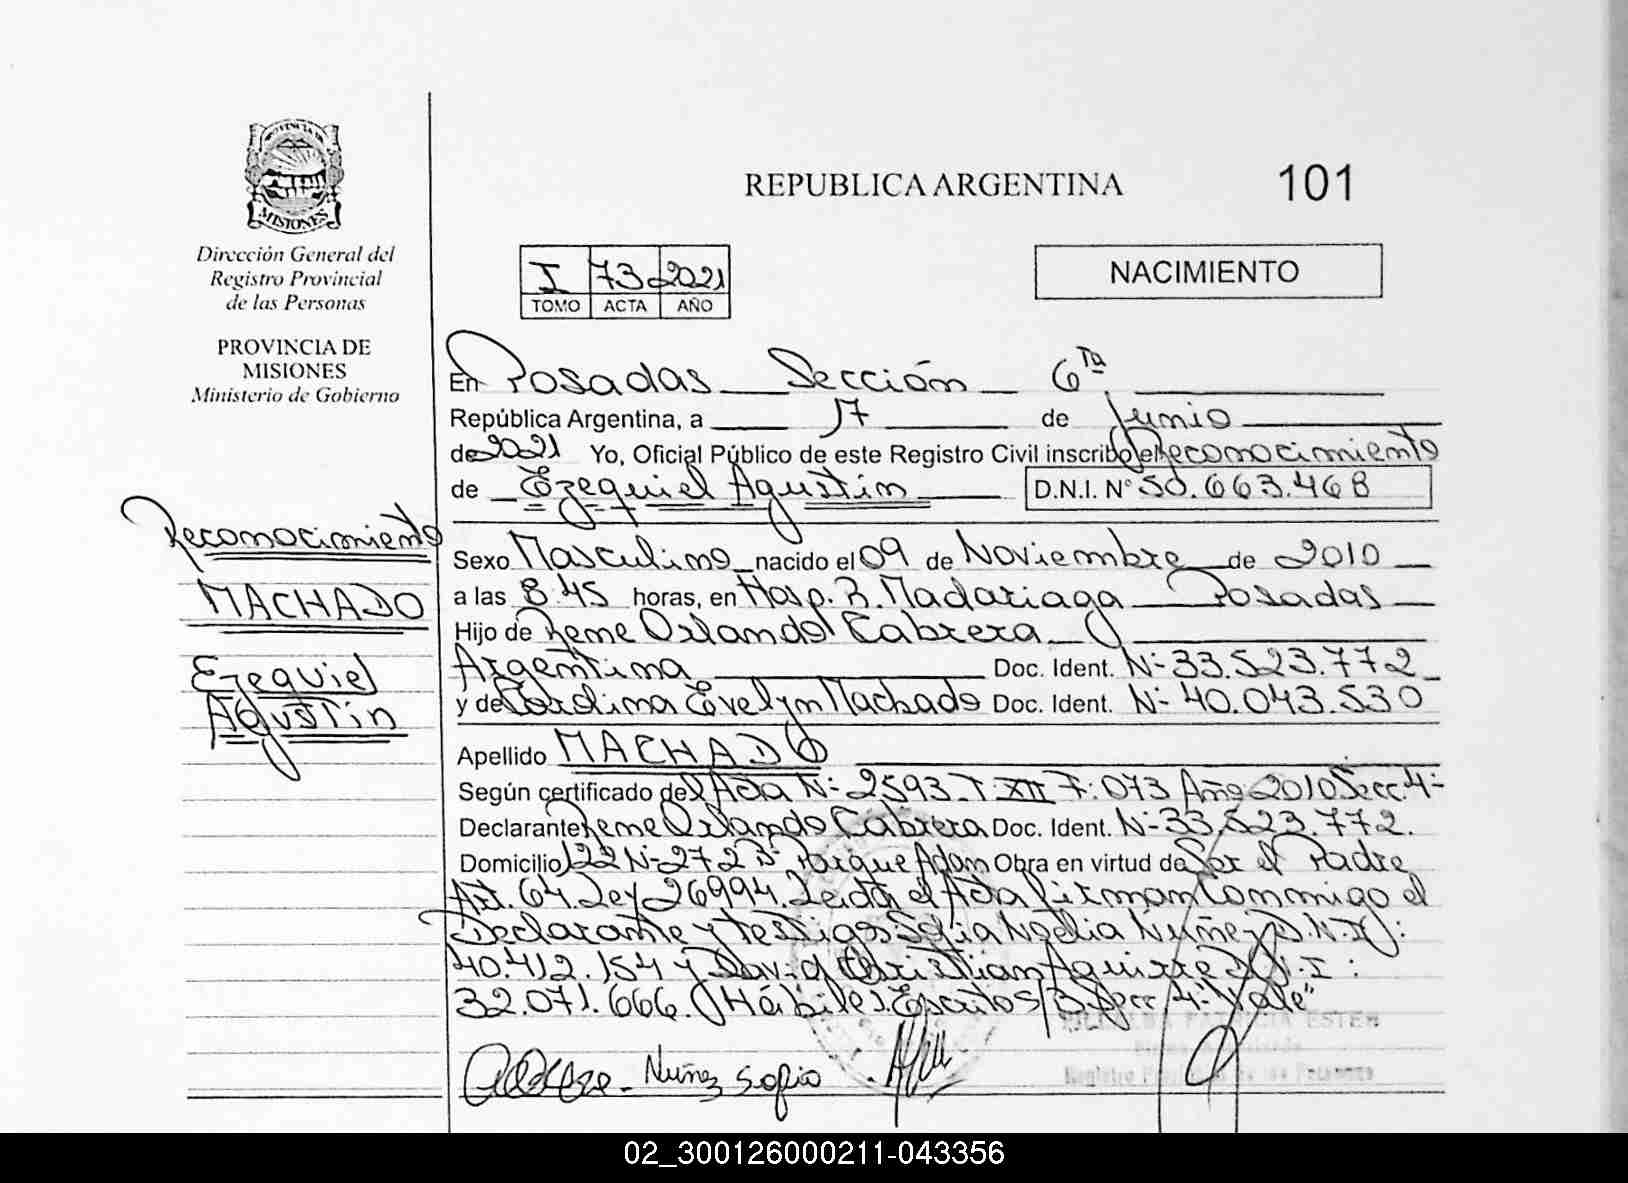 REPUBLICA ARGENTINA
101
PROVINCIA DE
MISIONES
Dirección General del
Registro Provincial
de las Personas
PROVINCIA DE
MISIONES
Ministerio de Gobierno
I 73 2021
TOMO ACTA AÑO
NACIMIENTO
En Posadas Sección 6ta
República Argentina, a 17 de Junio
de 2021 Yo, Oficial Público de este Registro Civil inscribo el Reconocimiento
de Ezequiel Agustin D.N.I. N° 50.663.468
Reconocimiento
MACHADO
Ezequiel
Agustin
Sexo Masculino nacido el 09 de Noviembre de 2010
a las 8:45 horas, en Hosp. R. Madariaga Posadas
Hijo de Rene Orlando Cabrera
Argentina Doc. Ident. N- 33.523.772
y de Carolina Evelyn Machado Doc. Ident. N- 40.043.530
Apellido MACHADO
Según certificado del Acta N- 2593 T XII F: 073 Año 2010 Secc. 4-
Declarante Rene Orlando Cabrera Doc. Ident. N- 33.523.772.
Domicilio 122 N- 272 B- Parque Adam Obra en virtud de Ser el Padre
Art. 64 Ley 26994. Leida el Acta firman Conmigo el
Declarante y Testigos Sofia Noelia Nuñez D.N.I:
40.412.154 y David Christian Aguirre D.N.I:
32.071.666. Hábiles. Escritos 3 Secc 4- Vale"
Nuñez Sofia
ESTER
02_300126000211-043356